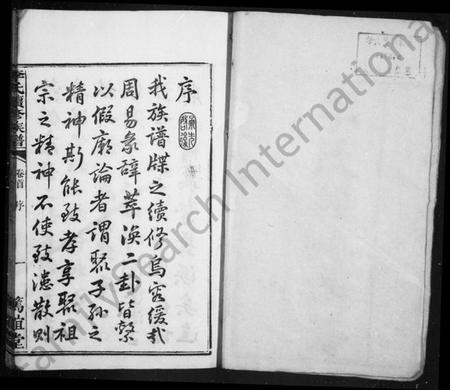 序
我族譜牒之續修烏容緩哉
周易彖辭萃渙二卦皆繫
以假廟論者謂聚子孫之
精神斯能致孝享聚祖
宗之精神不使致渙散則
氏續修族譜
卷首 序
一
篤誼堂
FamilySearch International